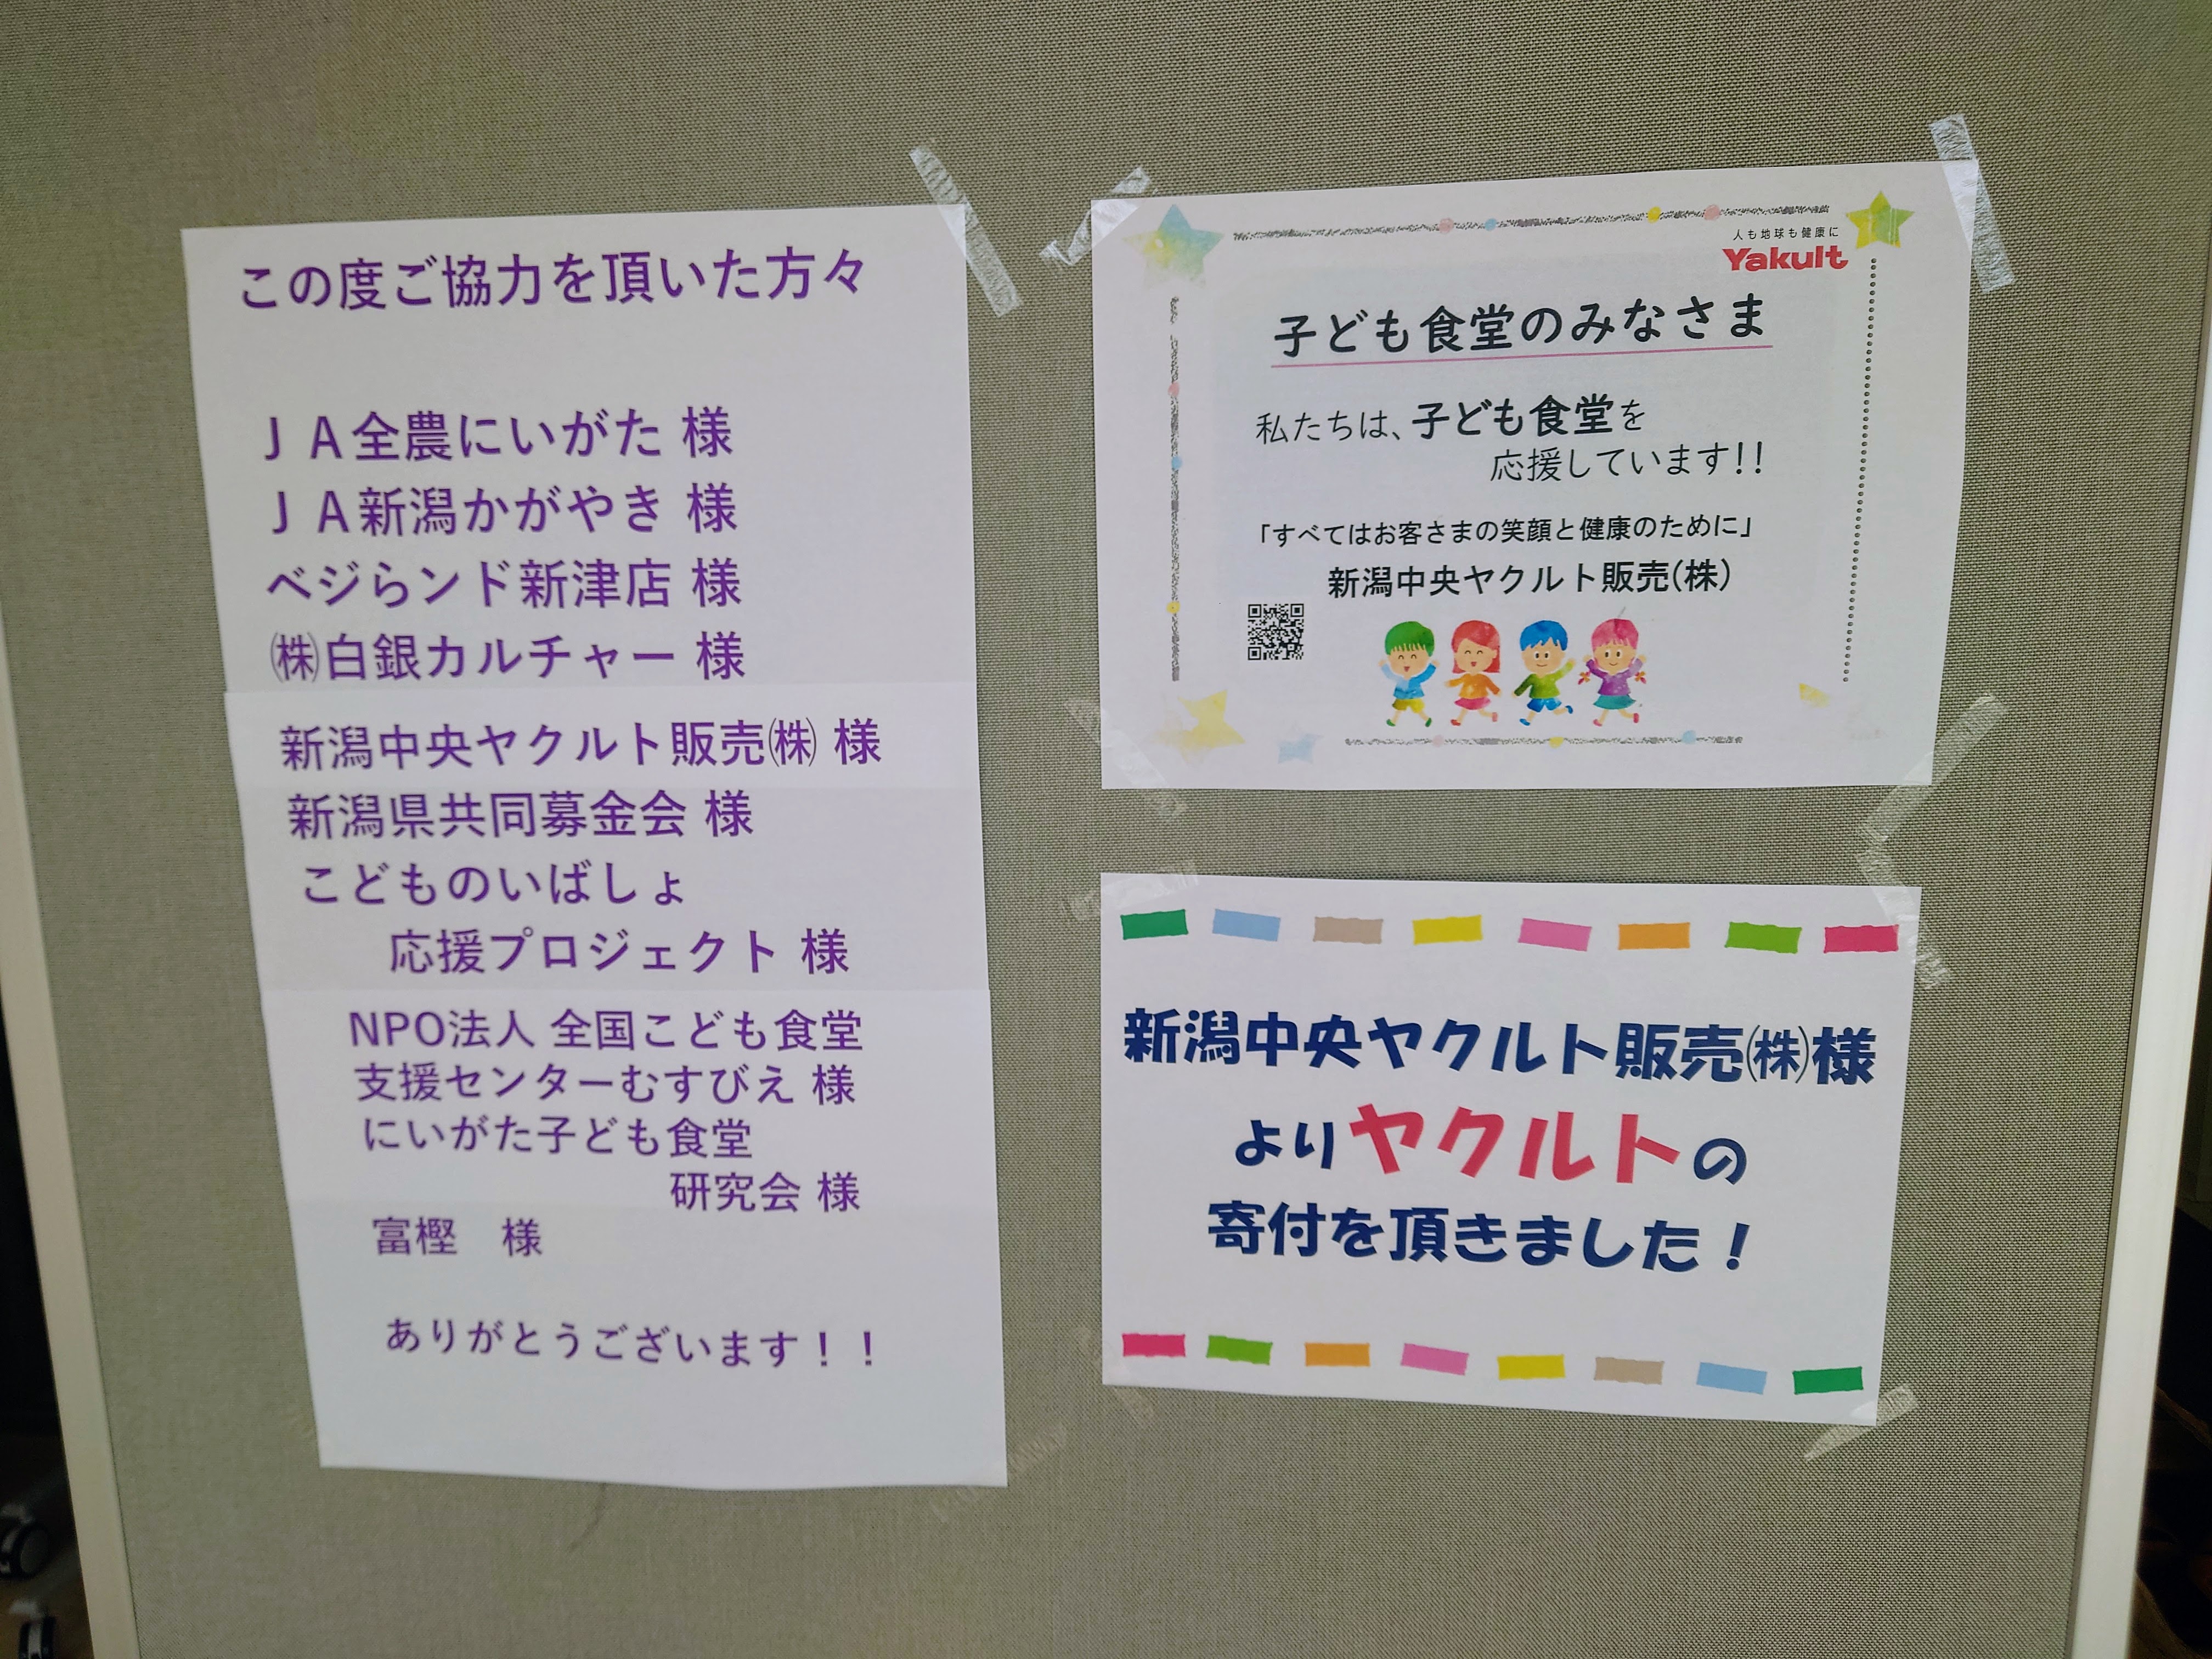 この度ご協力を頂いた方々
ＪＡ全農にいがた 様
ＪＡ新潟かがやき 様
ベジらンド新津店 様
㈱白銀カルチャー 様
新潟中央ヤクルト販売㈱ 様
新潟県共同募金会 様
こどものいばしょ
応援プロジェクト 様
NPO法人 全国こども食堂
支援センターむすびえ 様
にいがた子ども食堂
研究会 様
富樫　様
ありがとうございます！！
人も地球も健康に
Yakult
子ども食堂のみなさま
私たちは、子ども食堂を
応援しています!!
「すべてはお客さまの笑顔と健康のために」
新潟中央ヤクルト販売(株)
新潟中央ヤクルト販売㈱様
よりヤクルトの
寄付を頂きました！